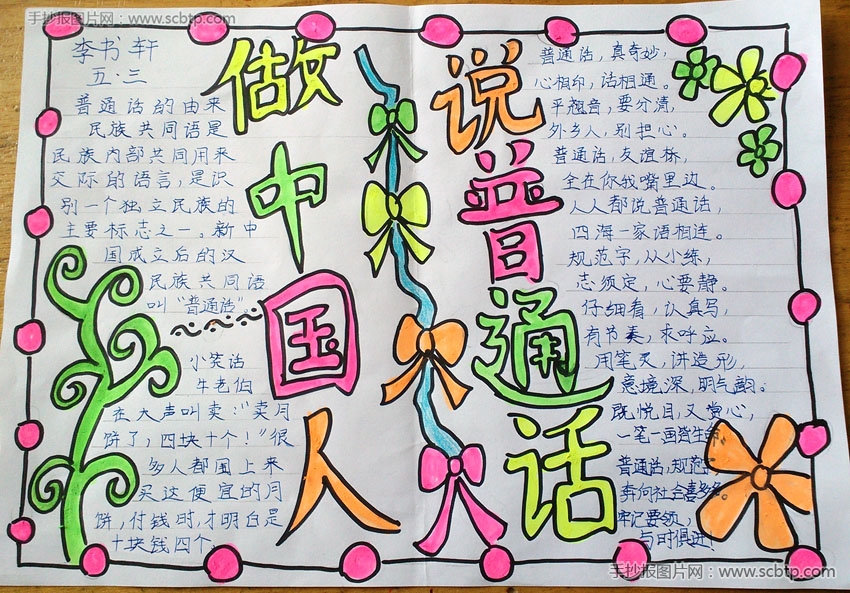 手抄报图片网：www.scbtp.com
李书轩
五·三
普通话的由来
民族共同语是
民族内部共同用来
交际的语言，是识
别一个独立民族的
主要标志之一。新中
国成立后的汉
民族共同语
叫“普通话”。
小笑话
牛老伯
在大声叫卖：“卖月
饼了，四块十个！”很
多人都围上来
买这便宜的月
饼，付钱时，才明白是
十块钱四个
做中国人
说普通话
普通话，真奇妙，
心相印，话相通。
平翘音，要分清，
外乡人，别担心。
普通话，友谊桥，
全在你我嘴里边。
人人都说普通话，
四海一家语相连。
规范字，从小练，
志须定，心要静。
仔细看，认真写，
有节奏，求呼应。
用笔灵，讲造形，
意境深，明气韵。
既悦目，又赏心，
一笔一画皆生
普通话，规范
奔向社会喜
牢记要领，
与时俱进
手抄报图片网：www.scbtp.com